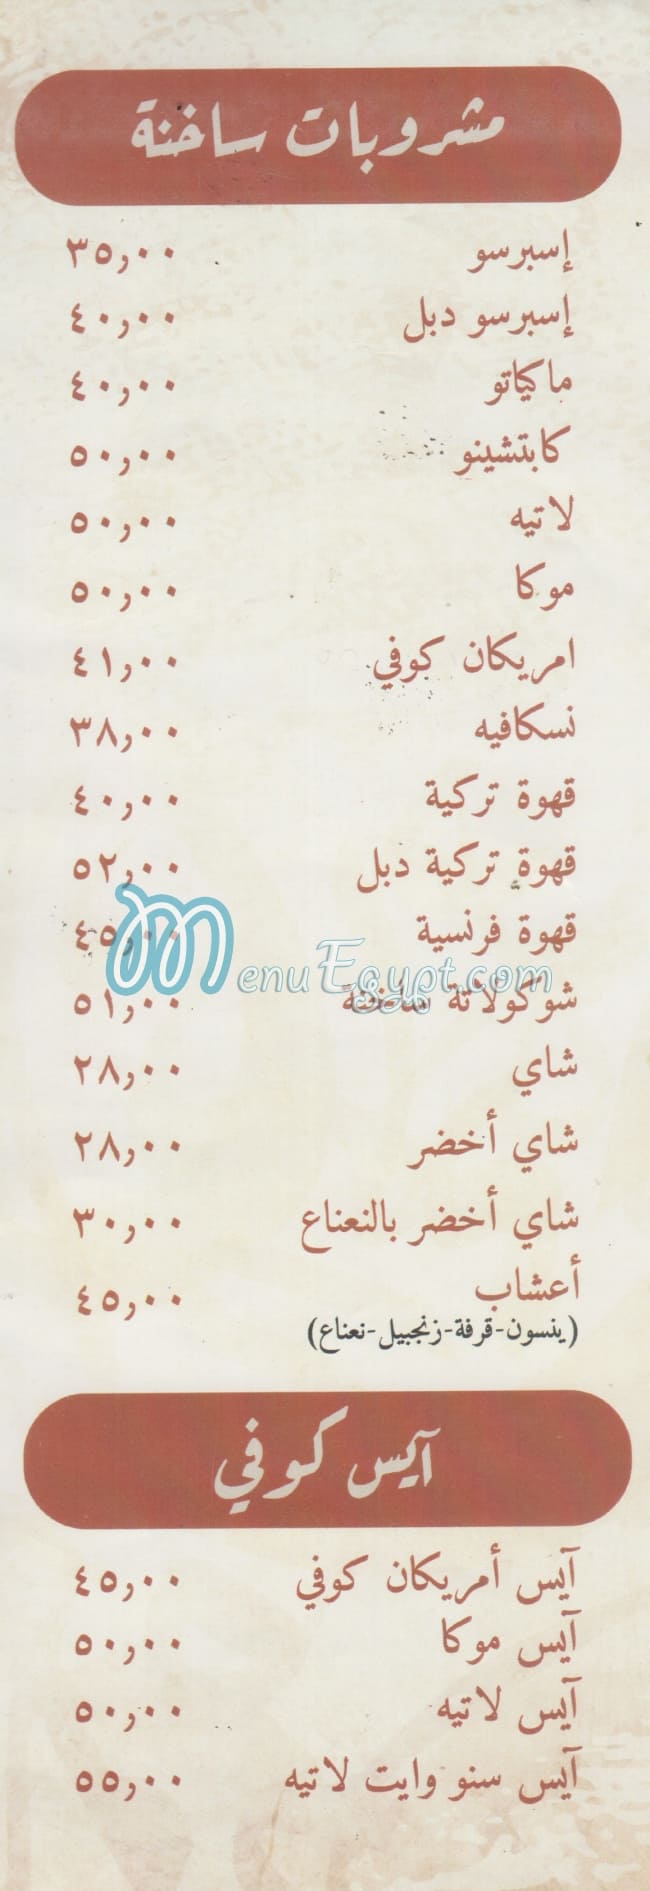 مشروبات ساخنة
إسبرسو ٣٥,٠٠
إسبرسو دبل ٤٠,٠٠
ماكياتو ٤٠,٠٠
كابتشينو ٥٠,٠٠
لاتيه ٥٠,٠٠
موكا ٥٠,٠٠
امريكان كوفي ٤١,٠٠
نسكافيه ٣٨,٠٠
قهوة تركية ٤٠,٠٠
قهوة تركية دبل ٥٢,٠٠
قهوة فرنسية ٤٥,٠٠
MenuEgypt.com
شوكولاتة ساخنة ٥١,٠٠
شاي ٢٨,٠٠
شاي أخضر ٢٨,٠٠
شاي أخضر بالنعناع ٣٠,٠٠
أعشاب ٤٥,٠٠
(ينسون-قرفة-زنجبيل-نعناع)
آيس كوفي
آيس أمريكان كوفي ٤٥,٠٠
آيس موكا ٥٠,٠٠
آيس لاتيه ٥٠,٠٠
آيس سنو وايت لاتيه ٥٥,٠٠